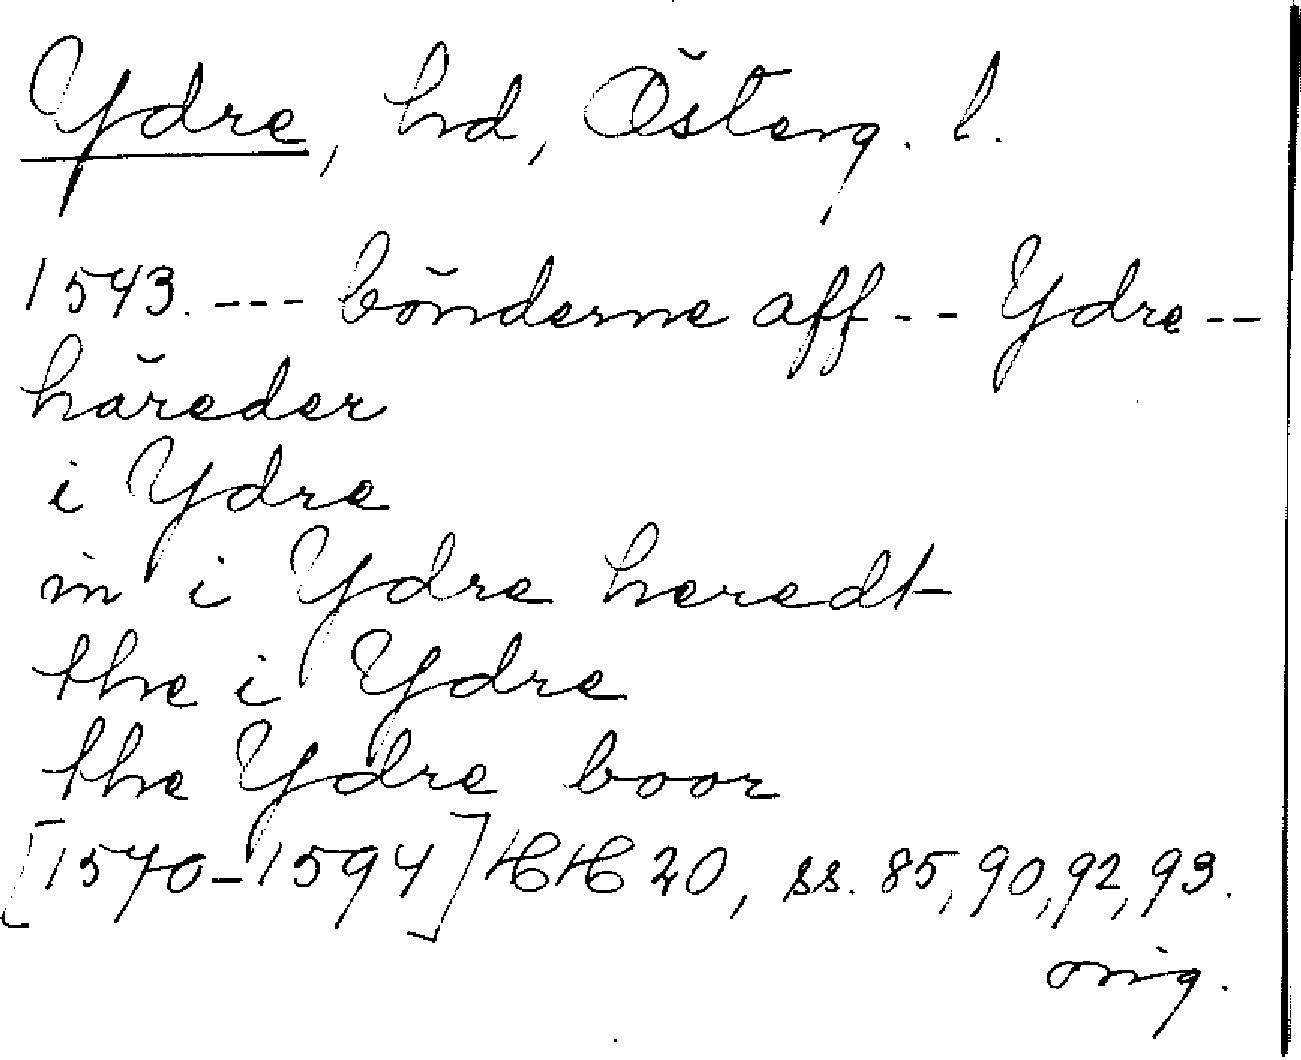 Ydre, hd, Österg. l.
1543. --- bönderne aff -- Ydre --
häreder
i Ydre
in i Ydre heredt
the i Ydre
the Ydre boor
[1570-1594] HH 20, ss. 85, 90, 92, 93.
orig.